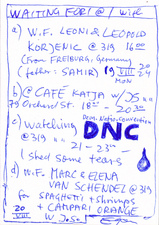 WAITING FOR! @ / wife
a) W.F. LEONI & LEOPOLD
KORJENIC @ 319 16 00
(from FREIBURG, Germany)
(father: SAMIR) 19 VIII 20 24
MON
b) @ CAFÉ KATJA W/
79 Orchard St. 18 - 20 30
c) watching Dem. Natio. Convention
@ 319 DNC
21 - 23
I shed some tears
d) W.F. MARC & ELENA
VAN SCHENDEL @ 319
for SPAGHETTI + Shrimps
20 + CAMPARI ORANGE
VIII W. José